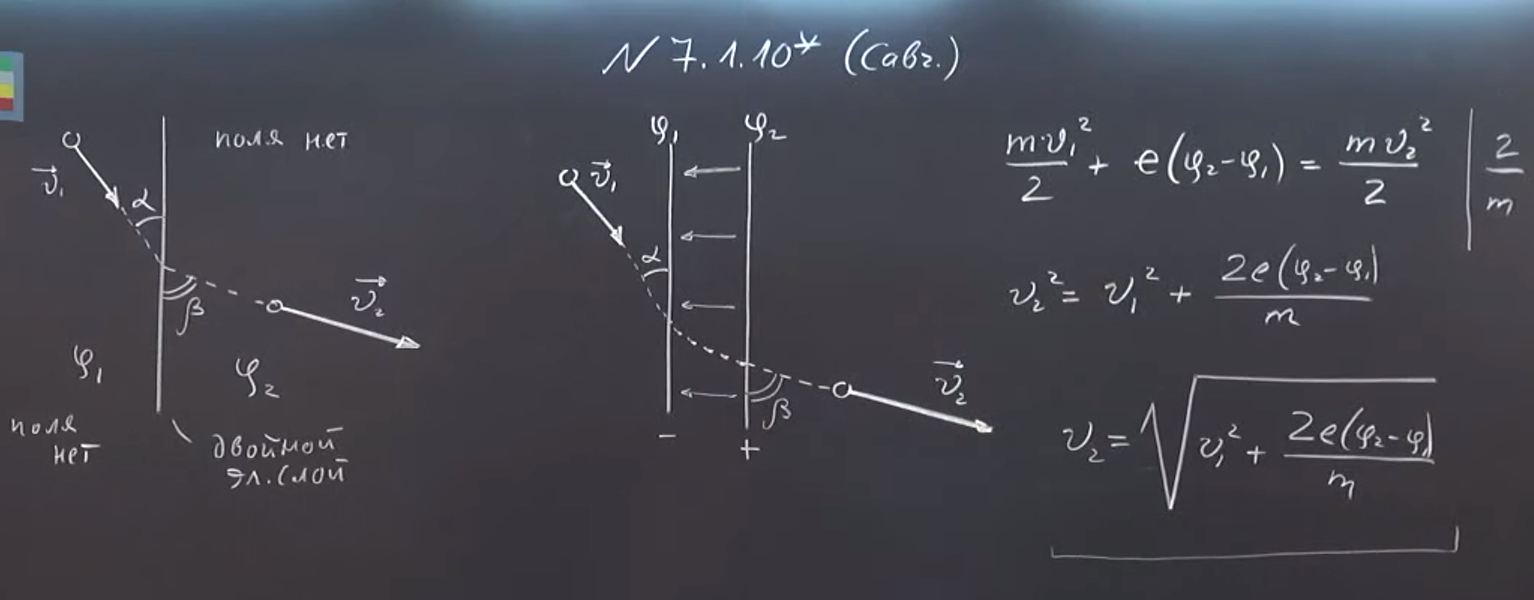 N 7.1.10* (Савч.)
поля нет
v⃗₁
α
β
v⃗₂
φ₁
φ₂
поля
нет
двойной
эл. слой
φ₁ φ₂
v⃗₁
α
β
v⃗₂
- +
mv₁²/2 + e(φ₂-φ₁) = mv₂²/2 | 2/m
v₂² = v₁² + 2e(φ₂-φ₁)/m
v₂ = √(v₁² + 2e(φ₂-φ₁)/m)